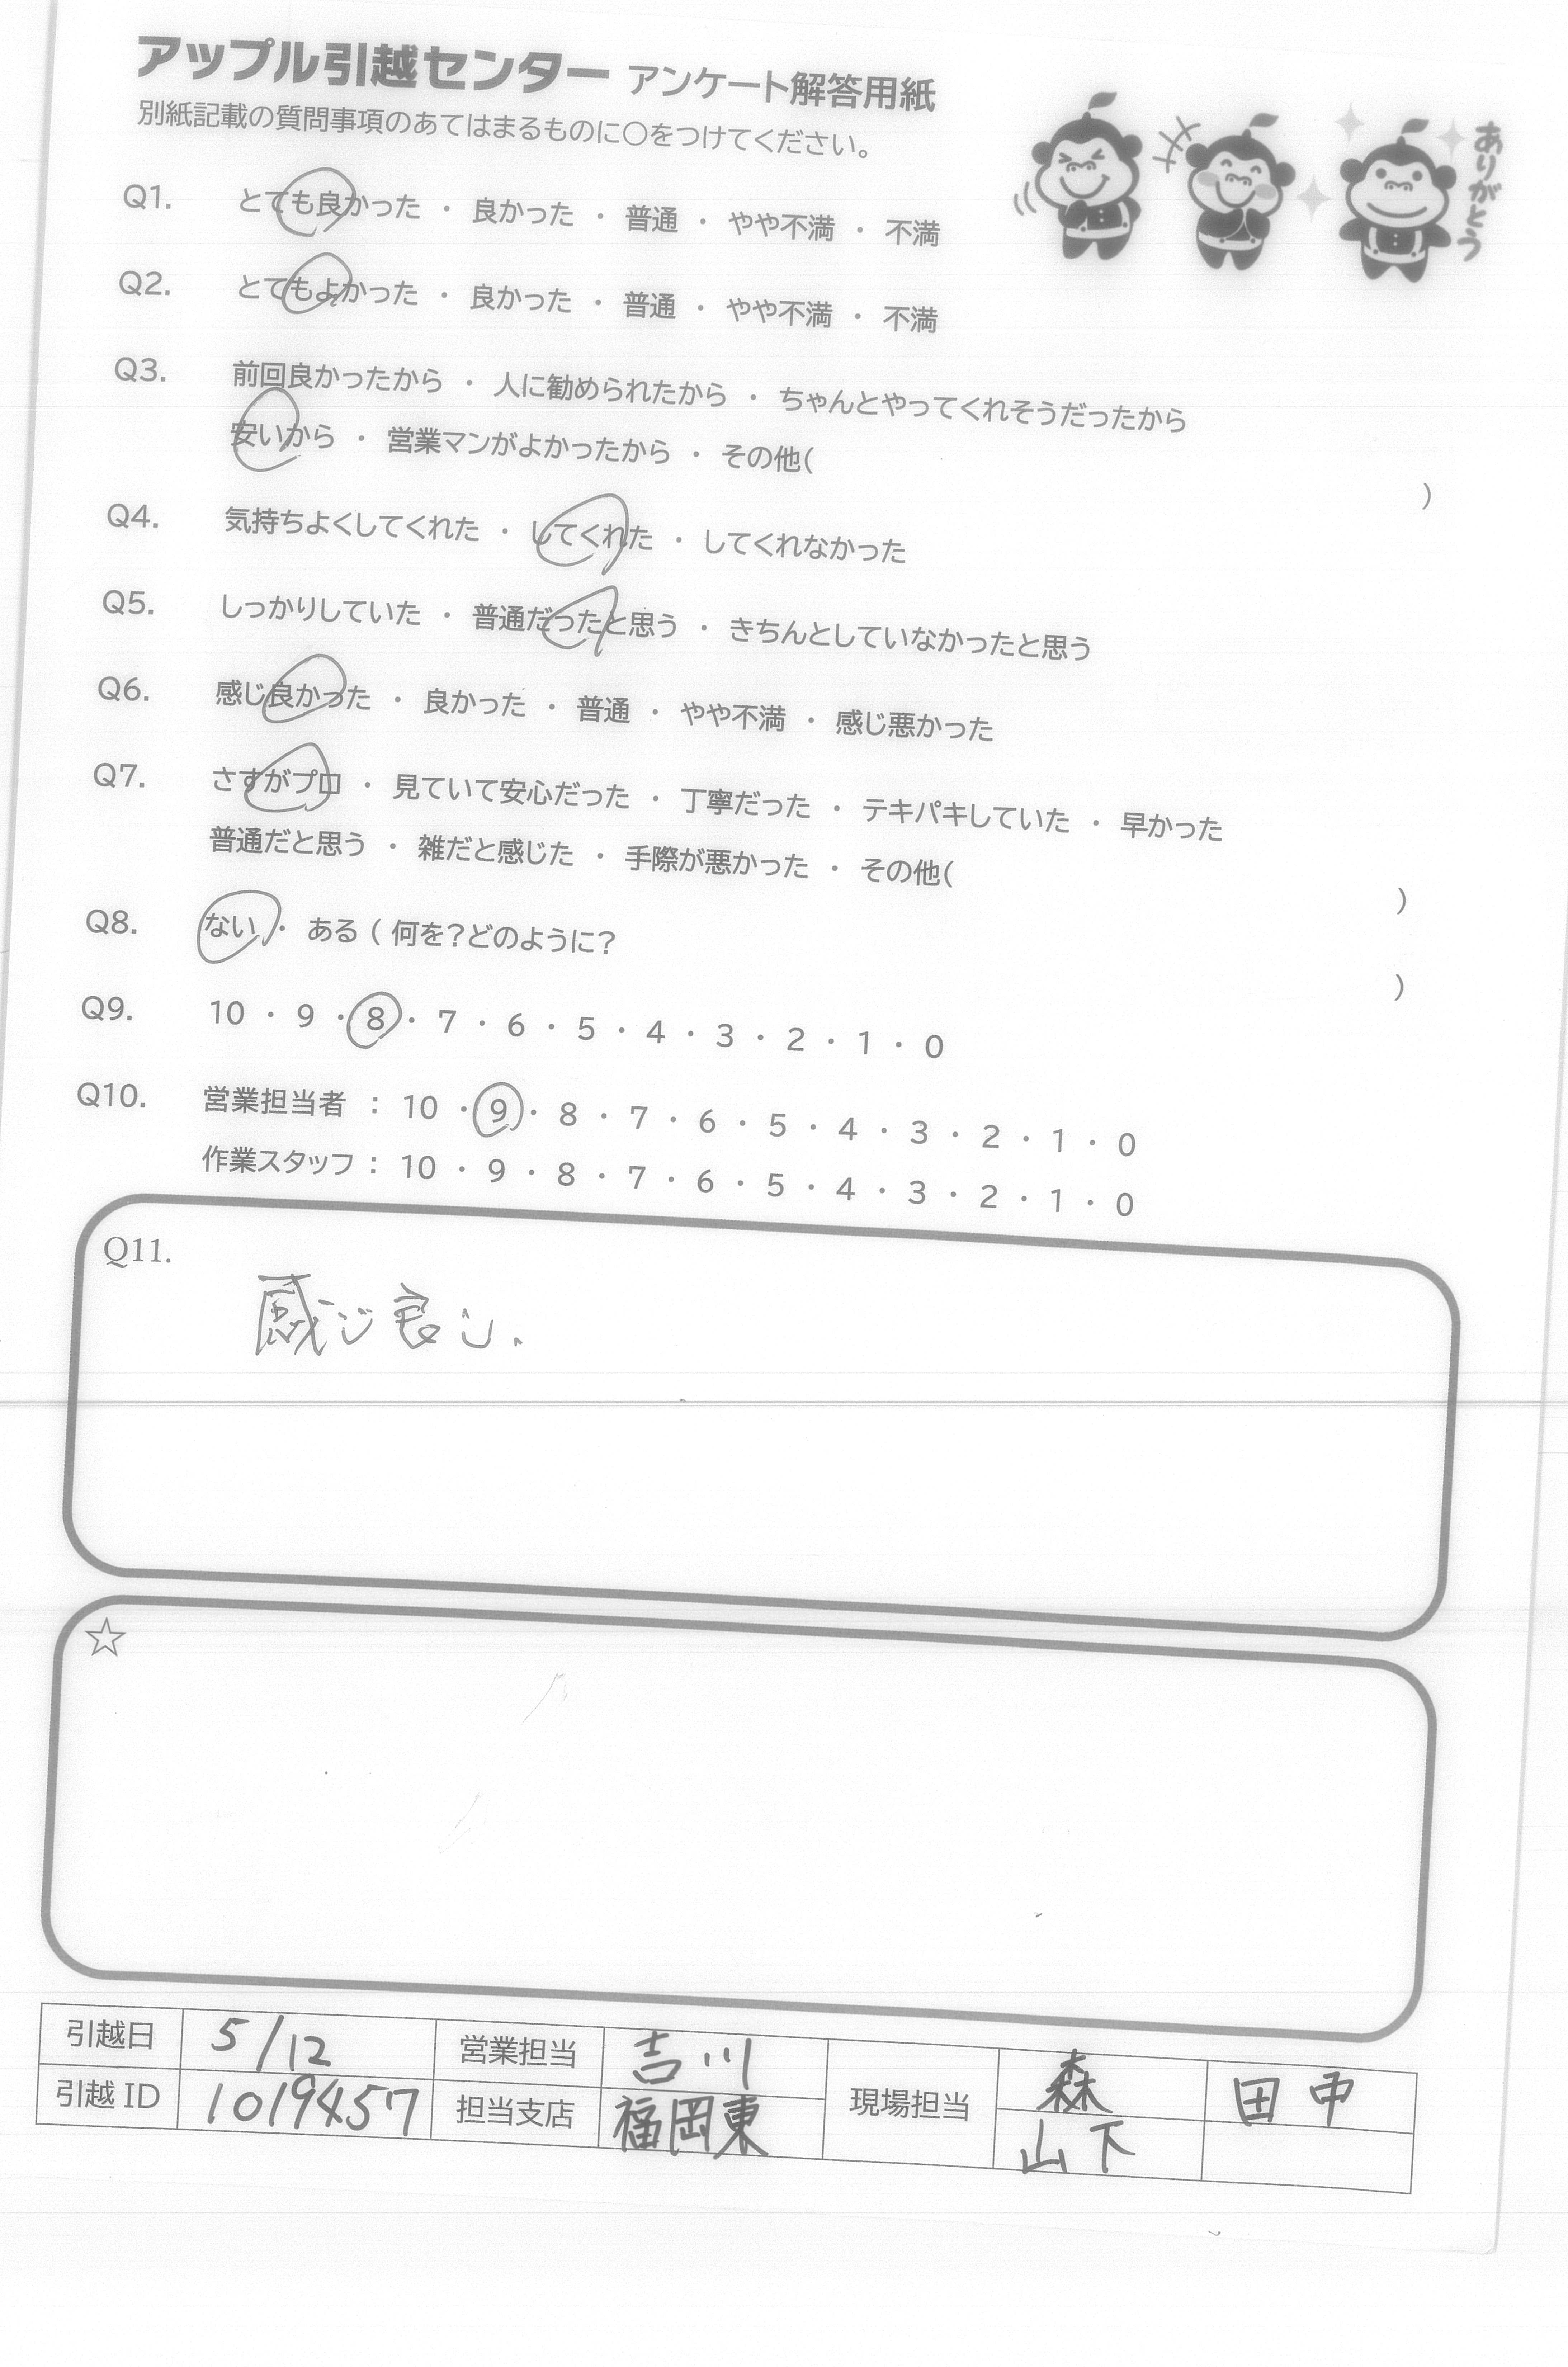 アップル引越センター アンケート解答用紙
別紙記載の質問事項のあてはまるものに〇をつけてください。
ありがとう
Q1. とても良かった ・ 良かった ・ 普通 ・ やや不満 ・ 不満
Q2. とてもよかった ・ 良かった ・ 普通 ・ やや不満 ・ 不満
Q3. 前回良かったから ・ 人に勧められたから ・ ちゃんとやってくれそうだったから
安いから ・ 営業マンがよかったから ・ その他( )
Q4. 気持ちよくしてくれた ・ してくれた ・ してくれなかった
Q5. しっかりしていた ・ 普通だったと思う ・ きちんとしていなかったと思う
Q6. 感じ良かった ・ 良かった ・ 普通 ・ やや不満 ・ 感じ悪かった
Q7. さすがプロ ・ 見ていて安心だった ・ 丁寧だった ・ テキパキしていた ・ 早かった
普通だと思う ・ 雑だと感じた ・ 手際が悪かった ・ その他( )
Q8. ない ・ ある ( 何を?どのように? )
Q9. 10 ・ 9 ・ 8 ・ 7 ・ 6 ・ 5 ・ 4 ・ 3 ・ 2 ・ 1 ・ 0
Q10. 営業担当者 : 10 ・ 9 ・ 8 ・ 7 ・ 6 ・ 5 ・ 4 ・ 3 ・ 2 ・ 1 ・ 0
作業スタッフ : 10 ・ 9 ・ 8 ・ 7 ・ 6 ・ 5 ・ 4 ・ 3 ・ 2 ・ 1 ・ 0
Q11.
感じ良し、
☆
引越日 5/12 営業担当 吉川 現場担当 森 田中
引越 ID 1019457 担当支店 福岡東 山下